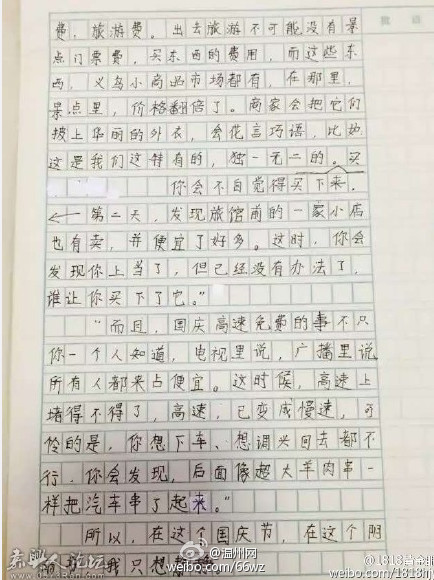 费，旅游费。出去旅游不可能没有景
点门票费，买东西的费用，而这些东
西，义乌小商品市场都有，在那里，
景点里，价格翻倍了。商家会把它们
披上华丽的外衣，会花言巧语，比如
这是我们这特有的，独一无二的。买
你会不自觉得买下来。
第二天，发现旅馆前的一家小店
也有卖，并便宜了好多。这时，你会
发现你上当了，但已经没有办法了，
谁让你买下了它。”
“而且，国庆高速免费的事不只
你一个人知道，电视里说，广播里说
所有人都来占便宜。这时候，高速上
堵得不得了，高速，已变成慢速，可
伶的是，你想下车、想调头回去都不
行，你会发现，后面像超大羊肉串一
样把汽车串了起来。”
所以，在这个国庆节，在这个阴
我只想
温州网
weibo.com/66wz